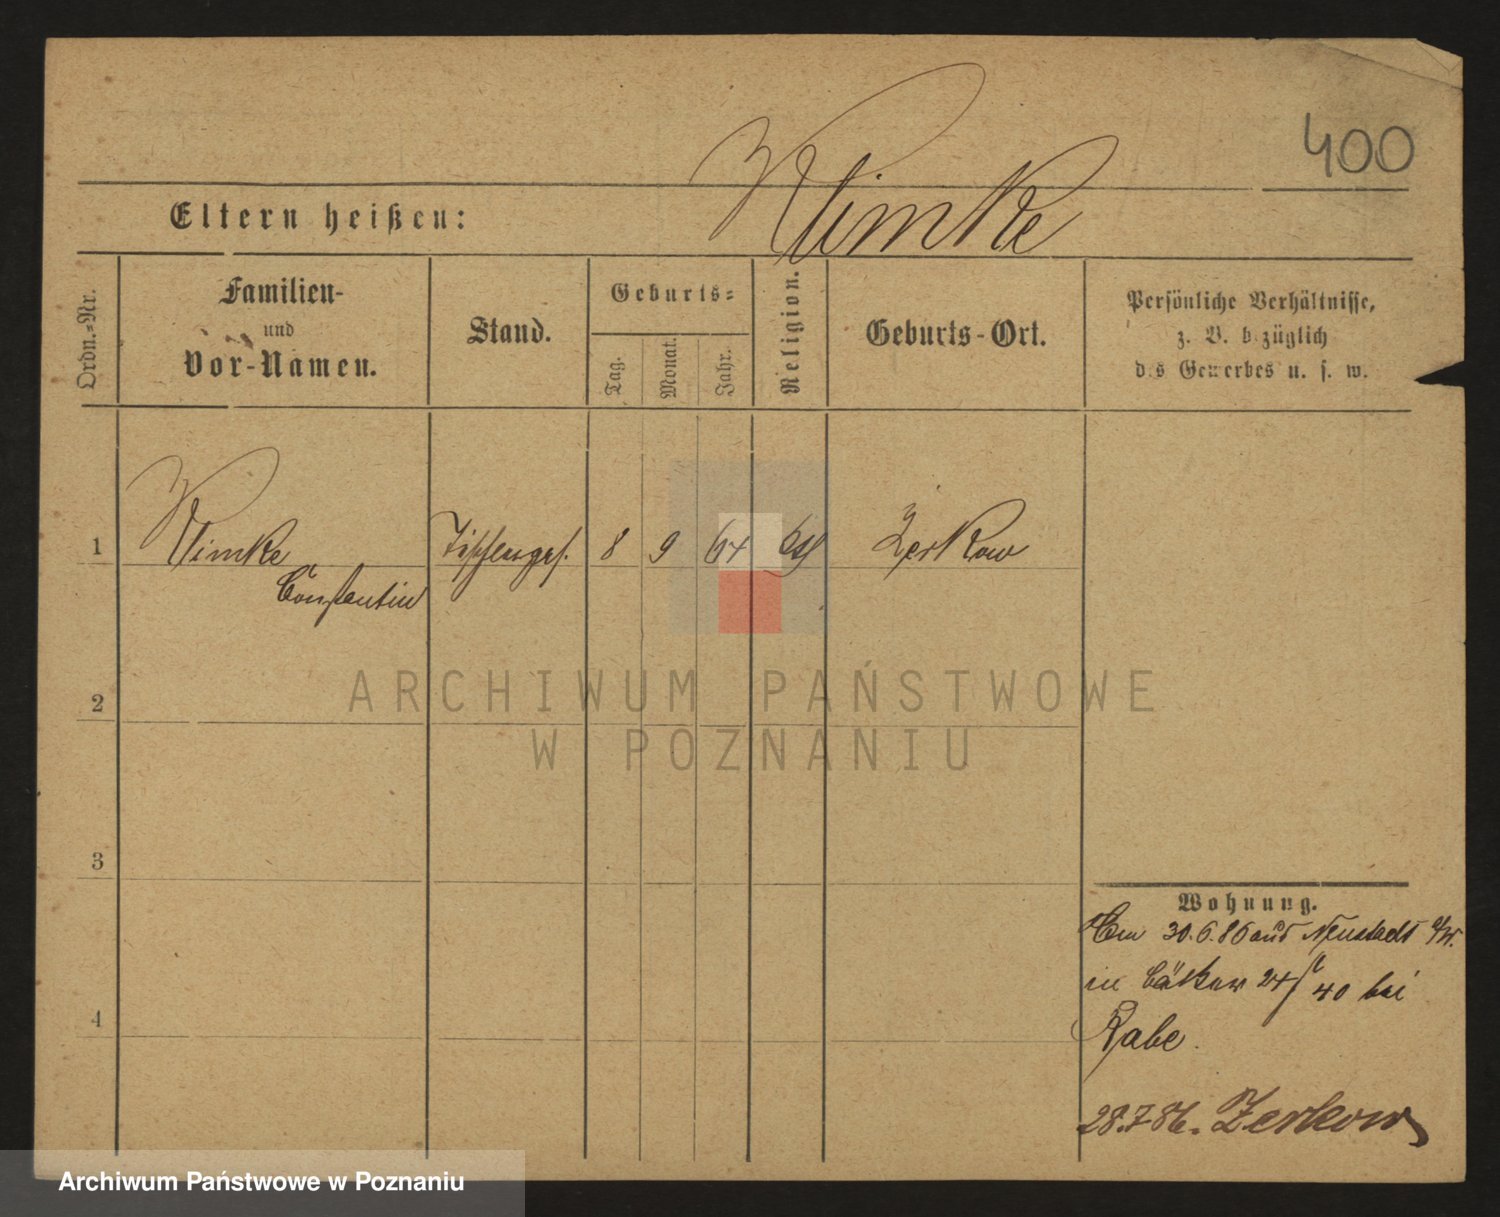 400
Klimke
Eltern heißen:
Ordn.-Nr.
Familien-
und
Vor-Namen.
Stand.
Geburts-
Tag.
Monat.
Jahr.
Religion.
Geburts-Ort.
Persönliche Verhältnisse,
z. B. bezüglich
des Gewerbes u. s. w.
1
Klimke
Constantin
Tischlerges.
8
9
64
kth
Zerkow
2
3
4
Wohnung.
30.6.86 aus Neustadt a/W.
in Bäcker 24/40 bei
Rabe.
28.7.86. Zerkow
ARCHIWUM PAŃSTWOWE
W POZNANIU
Archiwum Państwowe w Poznaniu